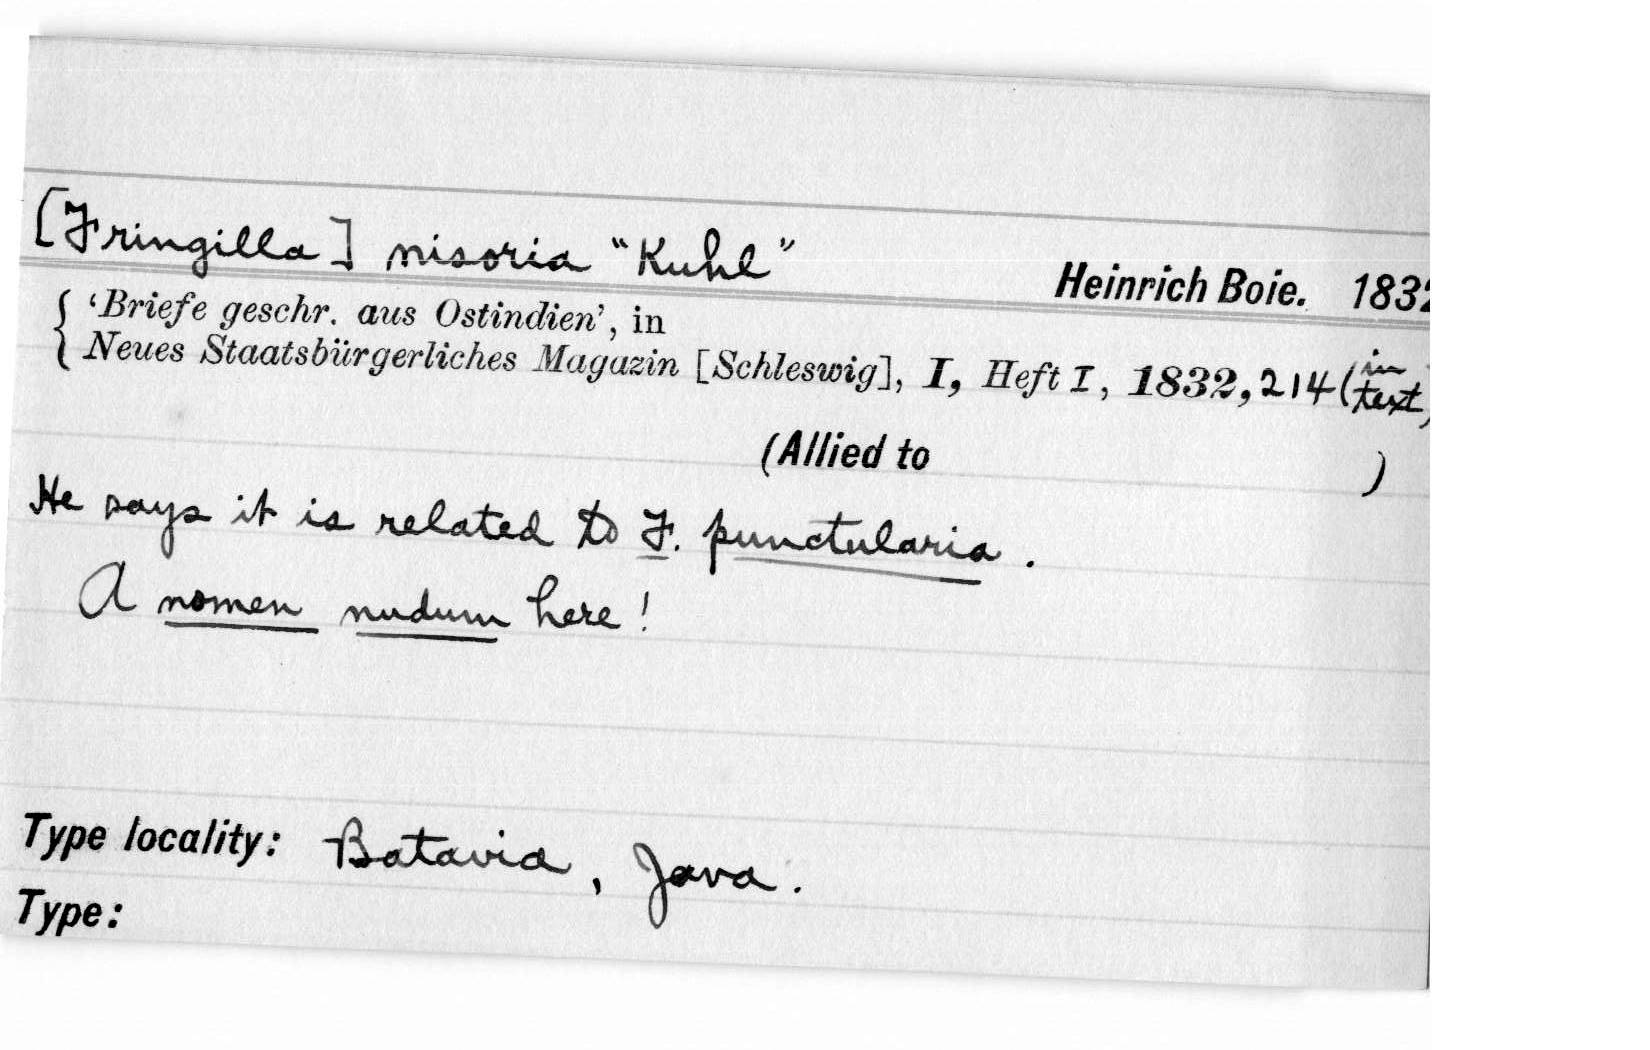 [Fringilla] nisoria "Kuhl"
Heinrich Boie. 1832
'Briefe geschr. aus Ostindien', in
Neues Staatsbürgerliches Magazin [Schleswig], I, Heft I, 1832, 214 (in text)
(Allied to )
He says it is related to F. punctularia.
A nomen nudum here!
Type locality: Batavia, Java.
Type: